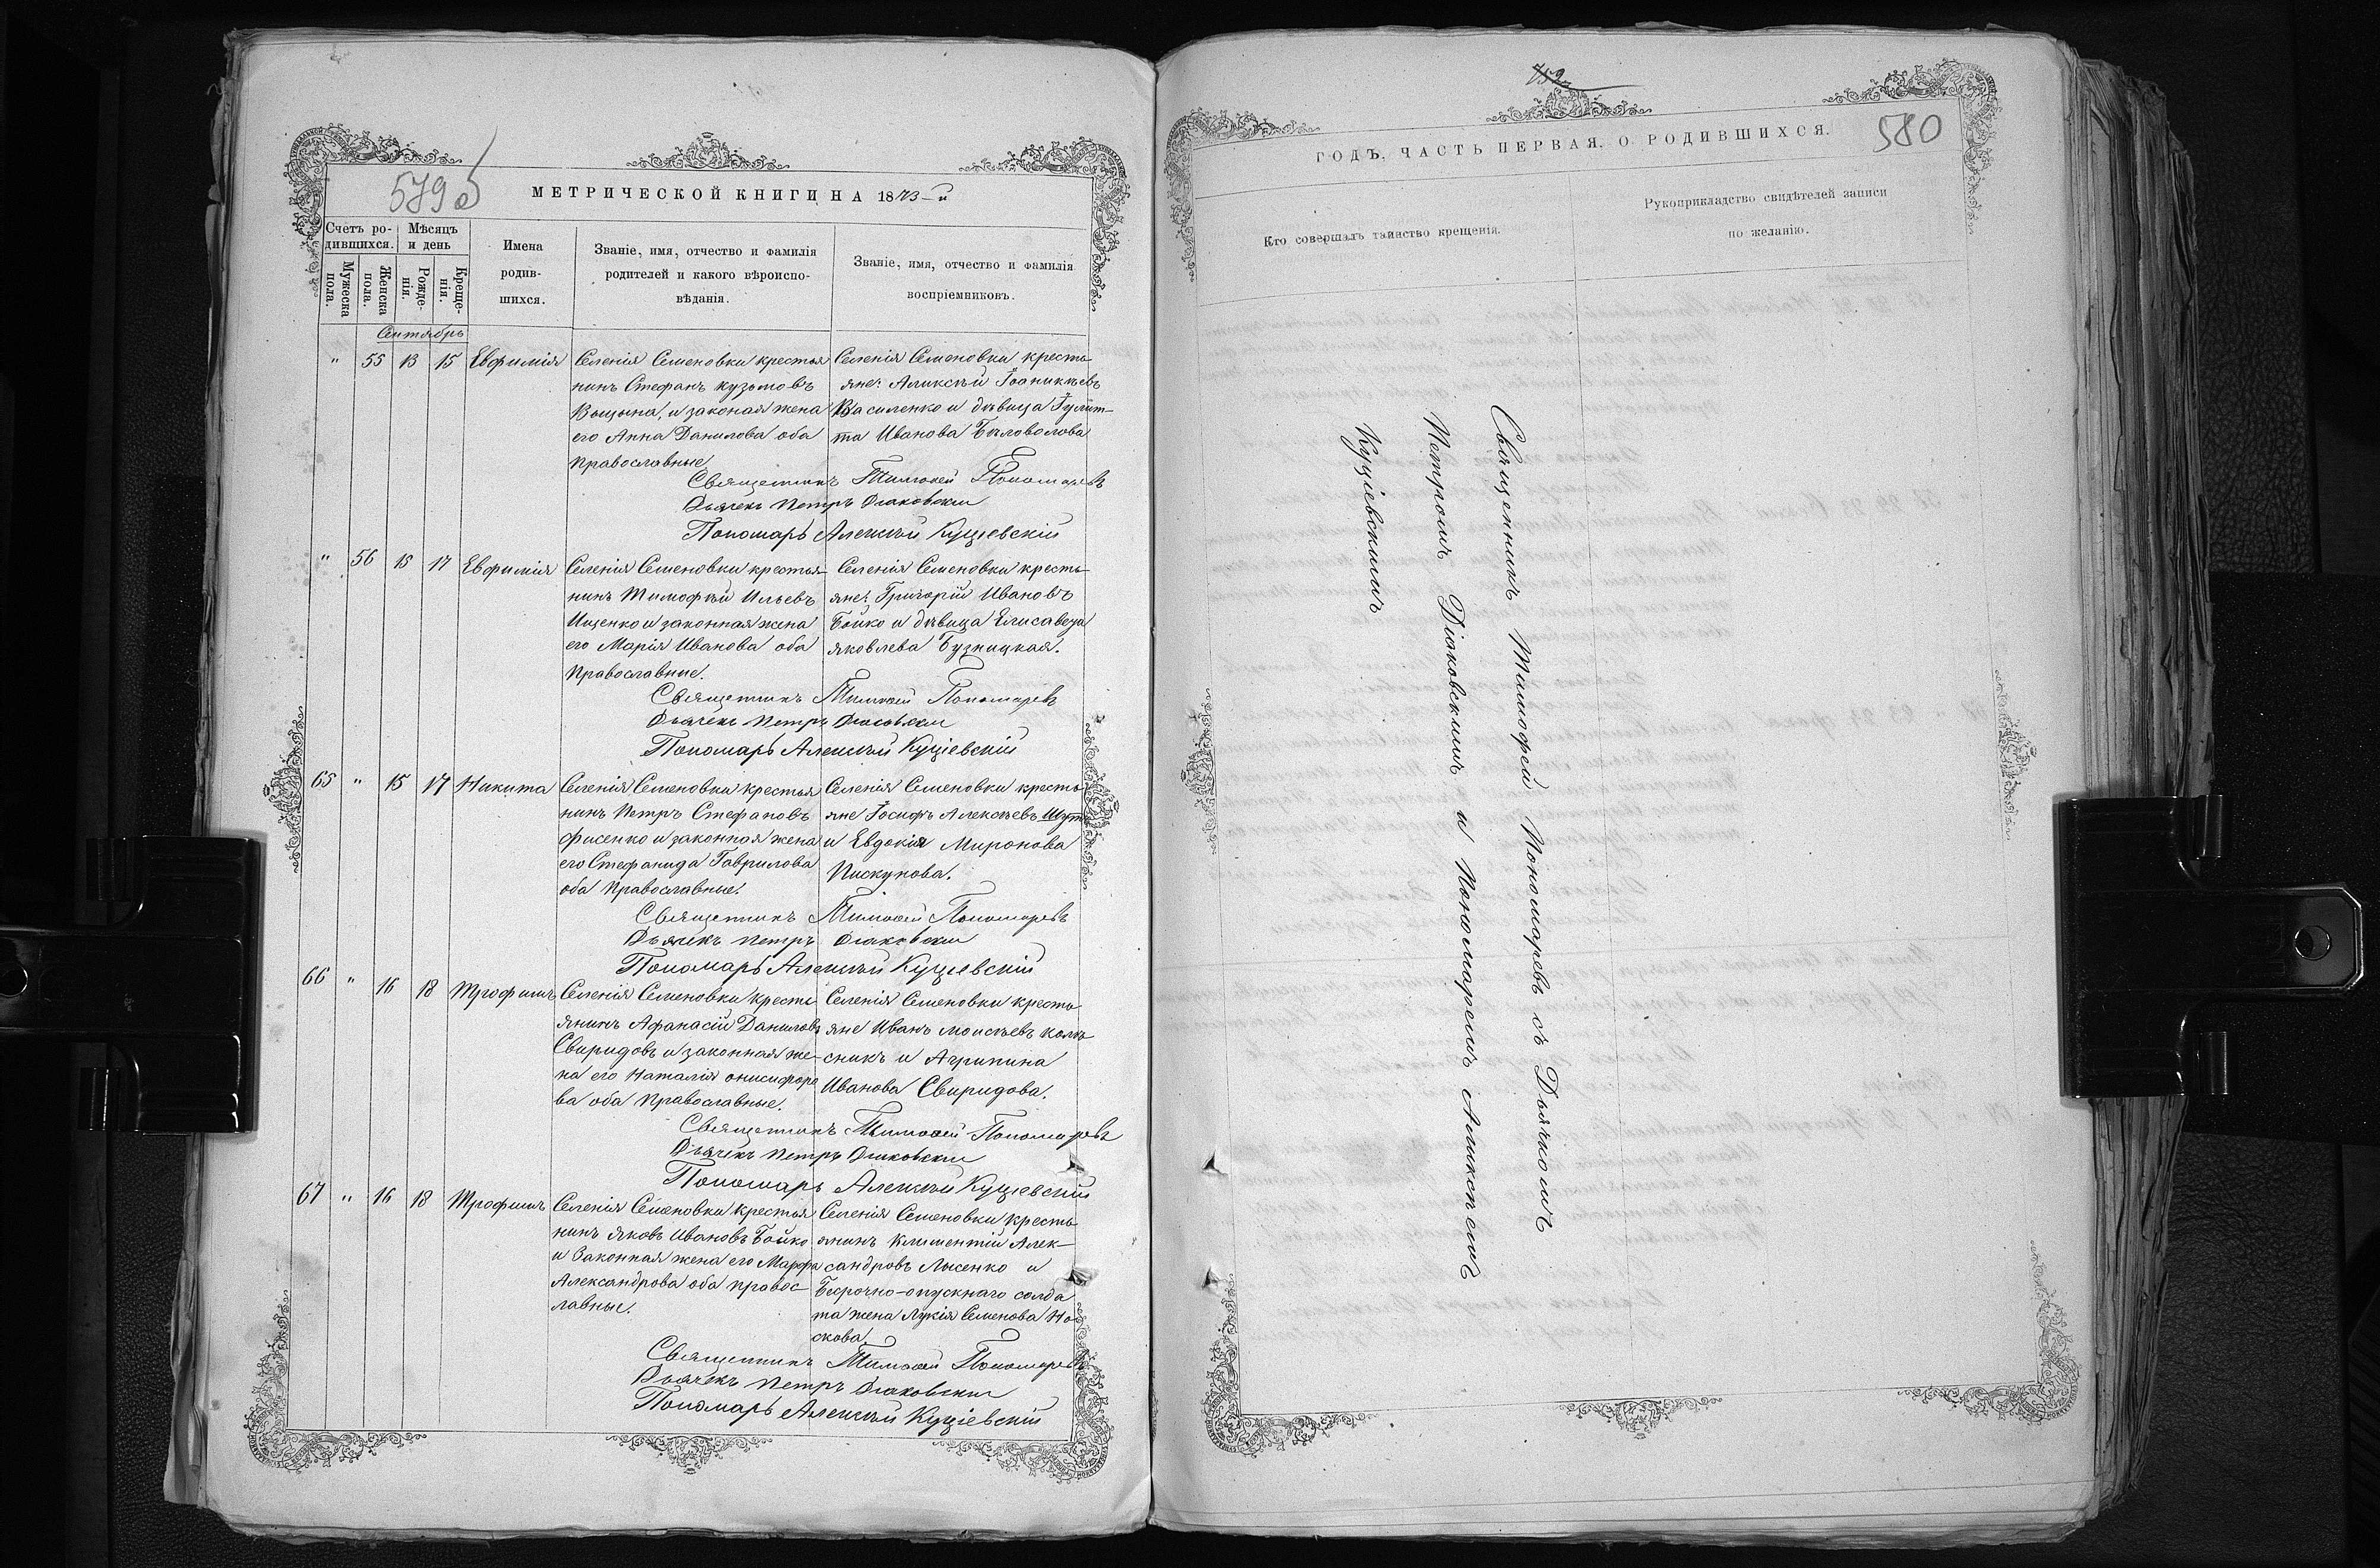 579 об
МЕТРИЧЕСКОЙ КНИГИ НА 1873-й
Счетъ ро-
дившихся.
Мѣсяцъ
и день
Мужеска
пола.
Женска
пола.
Рожде-
нія.
Креще-
нія.
Имена
родив-
шихся.
Званіе, имя, отчество и фамилія
родителей и какого вѣроиспо-
вѣданія.
Званіе, имя, отчество и фамилія
воспріемниковъ.
Сентябрь
" 55 13 15 Евфимія
Селенія Семеновки крестья
нинъ Стефанъ Кузьмовъ
и законая жена
его Анна Данилова оба
православные
Селенія Семеновки кресть
яне: Алексѣй Іоаникіевъ
Василенко и дѣвица Іулит-
та Иванова Бѣловолова
Священникъ Тимофей Пономаревъ
Дьячекъ Петръ Діаковскій
Пономарь Алексѣй Куціевскій
" 56 15 17 Евфимія
Селенія Семеновки крестья
нинъ Тимофѣй Ильевъ
Ищенко и законная жена
его Марія Иванова оба
Православные.
Селенія Семеновки кресть
яне: Григорій Ивановъ
Бойко и дѣвица Елисавета
Яковлева Бузницкая.
Священникъ Тимофей Пономаревъ
Дьячекъ Петръ Діаковскій
Пономарь Алексѣй Куціевскій
65 " 15 17 Никита
Селенія Семеновки крестья
нинъ Петръ Стефановъ
Фисенко и законная жена
его Стефанида Гаврилова
оба православные.
Селенія Семеновки кресть
яне Іосифъ Алексѣевъ
и Евдокія Миронова
Пискунова.
Священникъ Тимофей Пономаревъ
Дьячекъ Петръ Діаковскій
Пономарь Алексѣй Куціевскій
66 " 16 18 Трофимъ
Селенія Семеновки кресть
янинъ Афанасій Даниловъ
Свиридовъ и законная же-
на его Наталія Онисифоро
ва оба православные.
Селенія Семеновки кресть
яне Иванъ Моисѣевъ Коле
сникъ и Агрипина
Иванова Свиридова.
Священникъ Тимофей Пономаревъ
Дьячекъ Петръ Діаковскій
Пономарь Алексѣй Куціевскій
67 " 16 18 Трофимъ
Селенія Семеновки крестья
нинъ Яковъ Ивановъ Бойко
и Законная жена его Марфа
Александрова оба правос
лавные.
Селенія Семеновки кресть
янинъ Климентій Алек-
сандровъ Лысенко и
Безрочно-опускнаго солда
та жена Лукія Семенова Но
скова.
Священникъ Тимофей Пономаревъ
Дьячекъ Петръ Діаковскій
Пономарь Алексѣй Куціевскій
752
580
ГОДЪ, ЧАСТЬ ПЕРВАЯ, О РОДИВШИХСЯ.
Кто совершалъ таинство крещенія.
Рукоприкладство свидѣтелей записи
по желанію.
Священникъ Тимофей Пономаревъ съ Дьячкомъ
Петромъ Діаковскимъ и Пономаремъ Алексѣемъ
Куціевскимъ